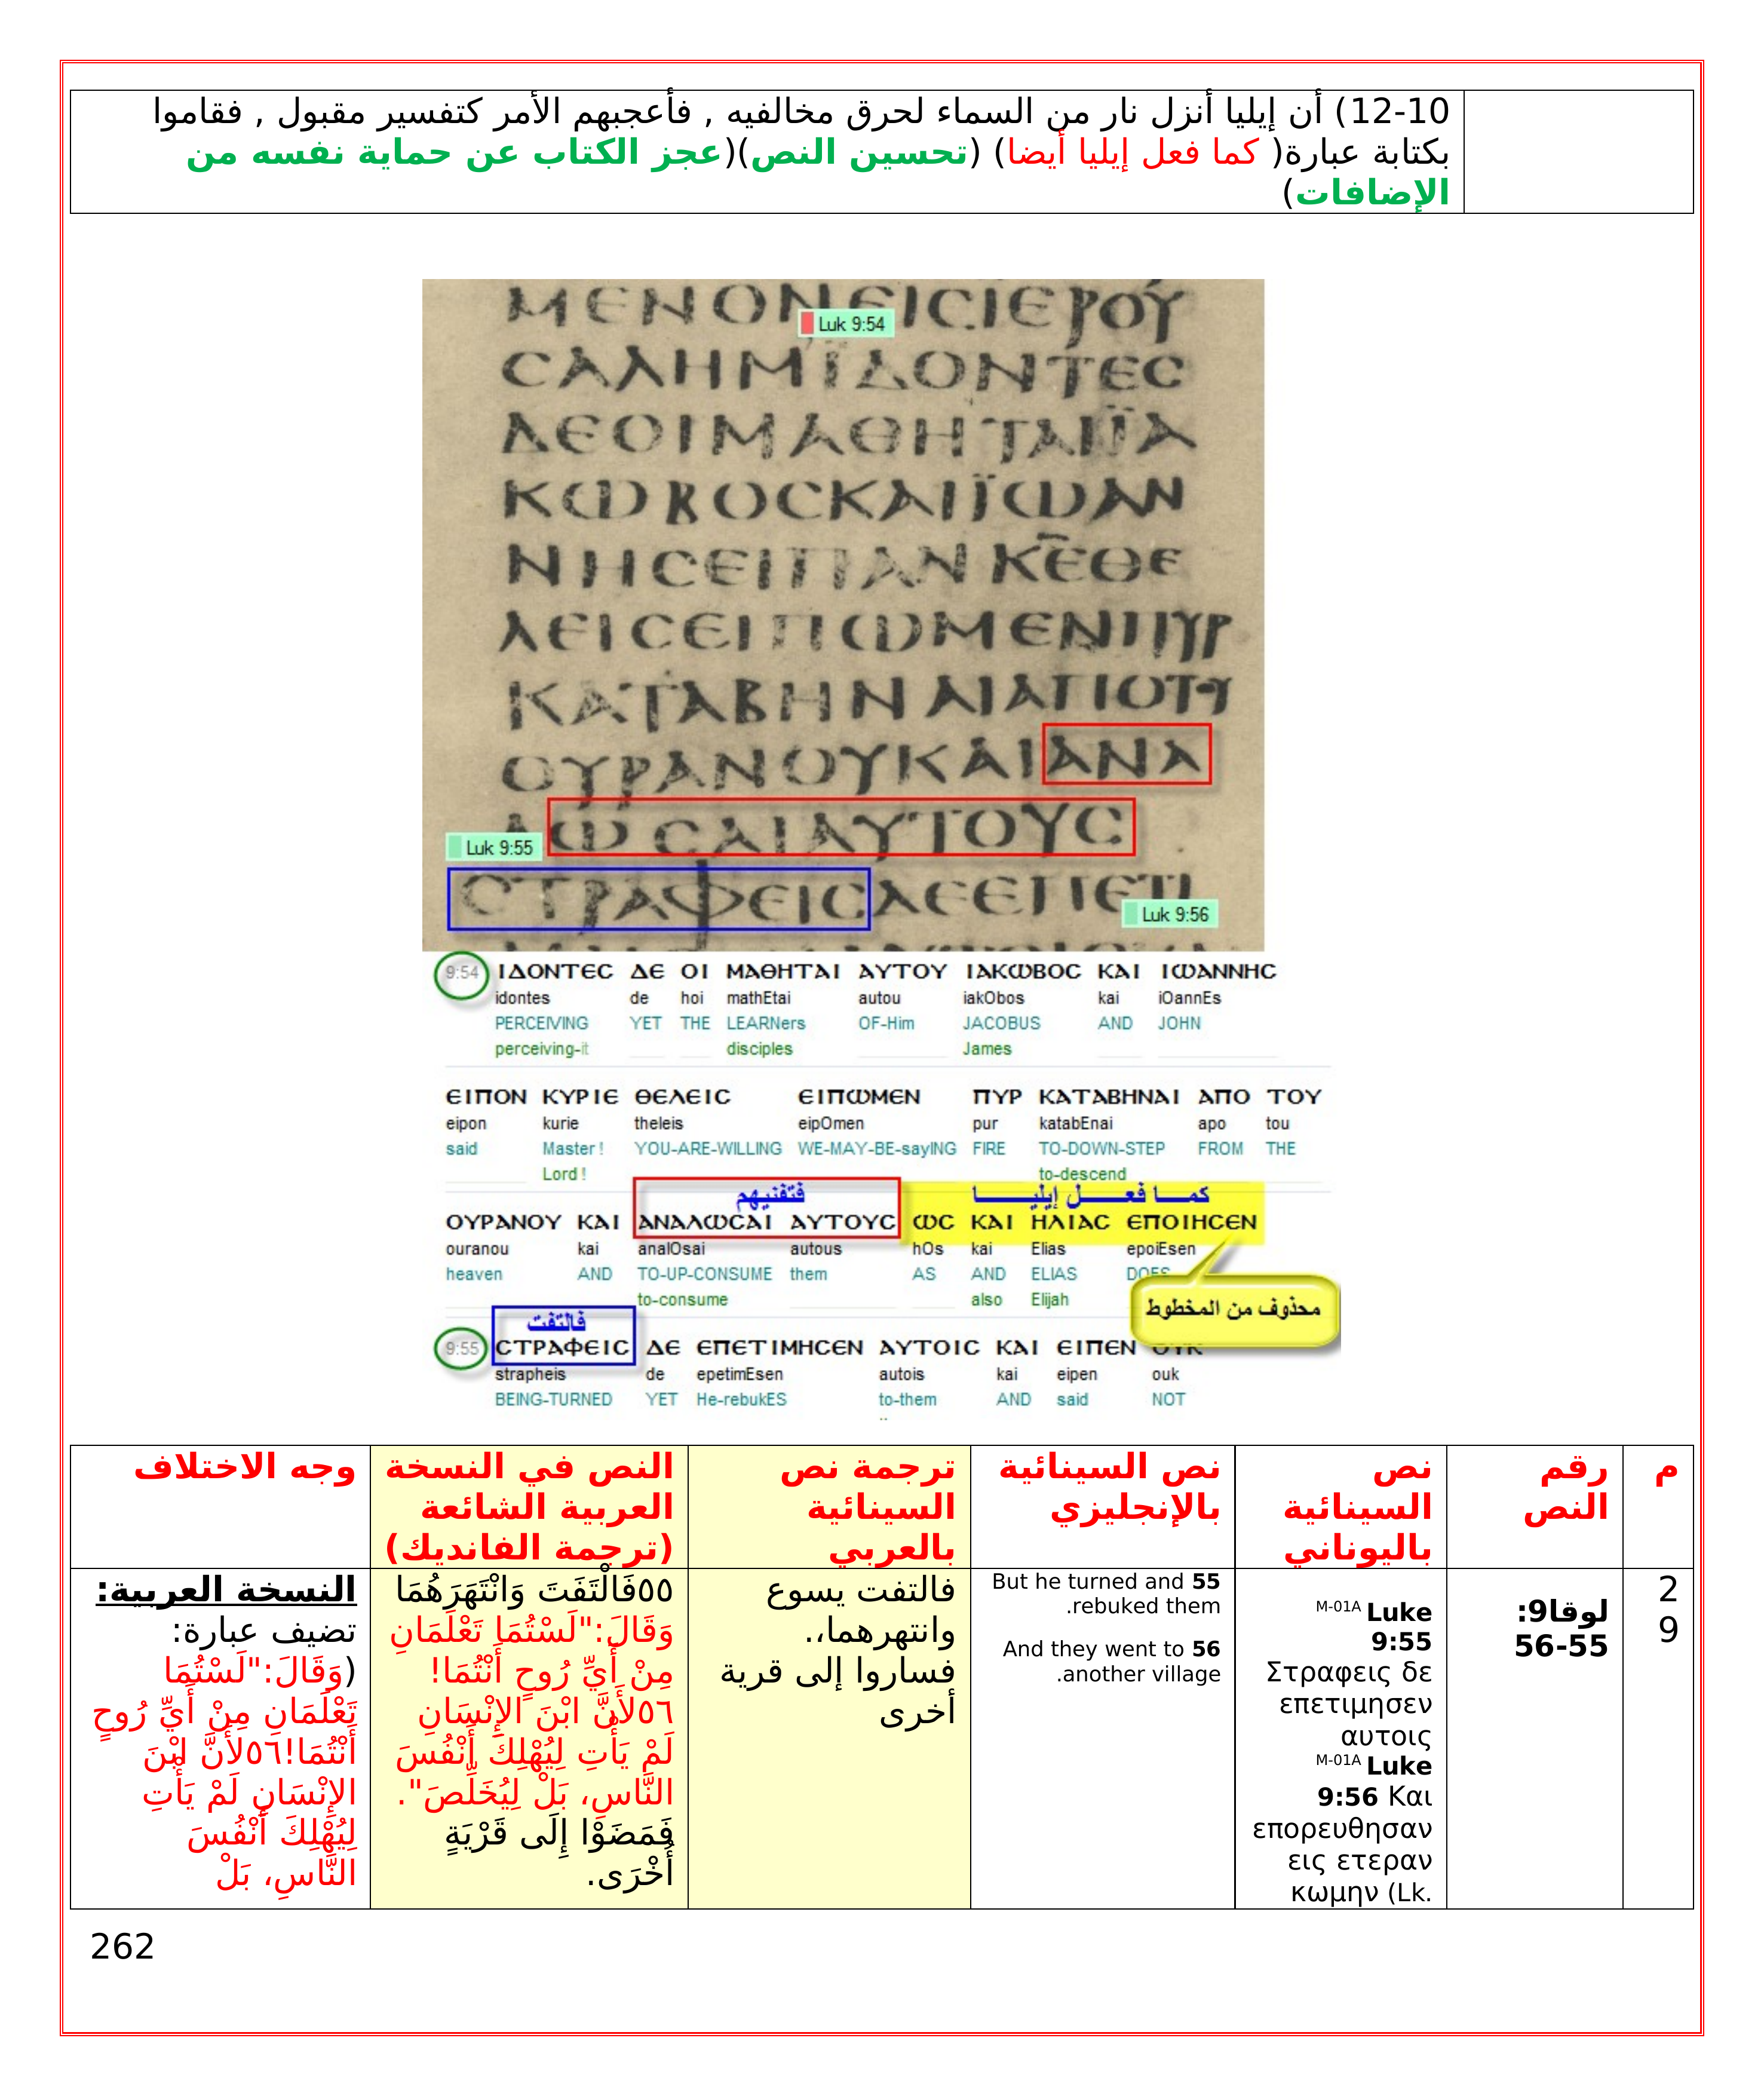 12-10) أن إيليا أنزل نار من السماء لحرق مخالفيه , فأعجبهم الأمر كتفسير مقبول , فقاموا
بكتابة عبارة( كما فعل إيليا أيضا) (تحسين النص)(عجز الكتاب عن حماية نفسه من
الإضافات)
ΜΕΝΟΝΕΙϹΙΕΡΟΥ
Luk 9:54
ϹΑΛΗΜΪΔΟΝΤΕϹ
ΔΕΟΙΜΑΘΗΤΑΙΪΑ
ΚΩΒΟϹΚΑΙΪΩΑΝ
ΝΗϹΕΙΠΑΝΚΕΘΕ
ΛΕΙϹΕΙΠΩΜΕΝΠΥΡ
ΚΑΤΑΒΗΝΑΙΑΠΟΤΥ
ΟΥΡΑΝΟΥΚΑΙΑΝΑ
ΛΩϹΑΙΑΥΤΟΥϹ
Luk 9:55
ϹΤΡΑΦΕΙϹΔΕΕΠΕΤΙ
Luk 9:56
9:54 ΙΔΟΝΤΕϹ ΔΕ ΟΙ ΜΑΘΗΤΑΙ ΑΥΤΟΥ ΙΑΚΩΒΟϹ ΚΑΙ ΙΩΑΝΝΗϹ
idontes de hoi mathEtai autou iakObos kai iOannEs
PERCEIVING YET THE LEARNers OF-Him JACOBUS AND JOHN
perceiving-it disciples James
ΕΙΠΟΝ ΚΥΡΙΕ ΘΕΛΕΙϹ ΕΙΠΩΜΕΝ ΠΥΡ ΚΑΤΑΒΗΝΑΙ ΑΠΟ ΤΟΥ
eipon kurie theleis eipOmen pur katabEnai apo tou
said Master ! YOU-ARE-WILLING WE-MAY-BE-sayING FIRE TO-DOWN-STEP FROM THE
Lord ! to-descend
فتفنيهم كما فعل إيليا
ΟΥΡΑΝΟΥ ΚΑΙ ΑΝΑΛΩϹΑΙ ΑΥΤΟΥϹ ΩϹ ΚΑΙ ΗΛΙΑϹ ΕΠΟΙΗϹΕΝ
ouranou kai analOsai autous hOs kai Elias epoiEsen
heaven AND TO-UP-CONSUME them AS AND ELIAS DOES
to-consume also Elijah
محذوف من المخطوط
فالتفت
9:55 ϹΤΡΑΦΕΙϹ ΔΕ ΕΠΕΤΙΜΗϹΕΝ ΑΥΤΟΙϹ ΚΑΙ ΕΙΠΕΝ ΟΥΚ
strapheis de epetimEsen autois kai eipen ouk
BEING-TURNED YET He-rebukES to-them AND said NOT
م
رقم
النص
نص
السينائية
باليوناني
نص السينائية
بالإنجليزي
ترجمة نص
السينائية
بالعربي
النص في النسخة
العربية الشائعة
(ترجمة الفانديك)
وجه الاختلاف
2
9
لوقا9:
56-55
M-01A Luke
9:55
Στραφεις δε
επετιμησεν
αυτοις
M-01A Luke
9:56 Και
επορευθησαν
εις ετεραν
κωμην (Lk.
But he turned and 55
.rebuked them
And they went to 56
.another village
فالتفت يسوع
وانتهرهما،.
فساروا إلى قرية
أخرى
٥٥فَالْتَفَتَ وَانْتَهَرَهُمَا
وَقَالَ:"لَسْتُمَا تَعْلَمَانِ
مِنْ أَيِّ رُوحٍ أَنْتُمَا!
٥٦لأَنَّ ابْنَ الإِنْسَانِ
لَمْ يَأْتِ لِيُهْلِكَ أَنْفُسَ
النَّاسِ، بَلْ لِيُخَلِّصَ".
فَمَضَوْا إِلَى قَرْيَةٍ
أُخْرَى.
النسخة العربية:
تضيف عبارة:
(وَقَالَ:"لَسْتُمَا
تَعْلَمَانِ مِنْ أَيِّ رُوحٍ
أَنْتُمَا!٥٦لأَنَّ ابْنَ
الإِنْسَانِ لَمْ يَأْتِ
لِيُهْلِكَ أَنْفُسَ
النَّاسِ، بَلْ
262